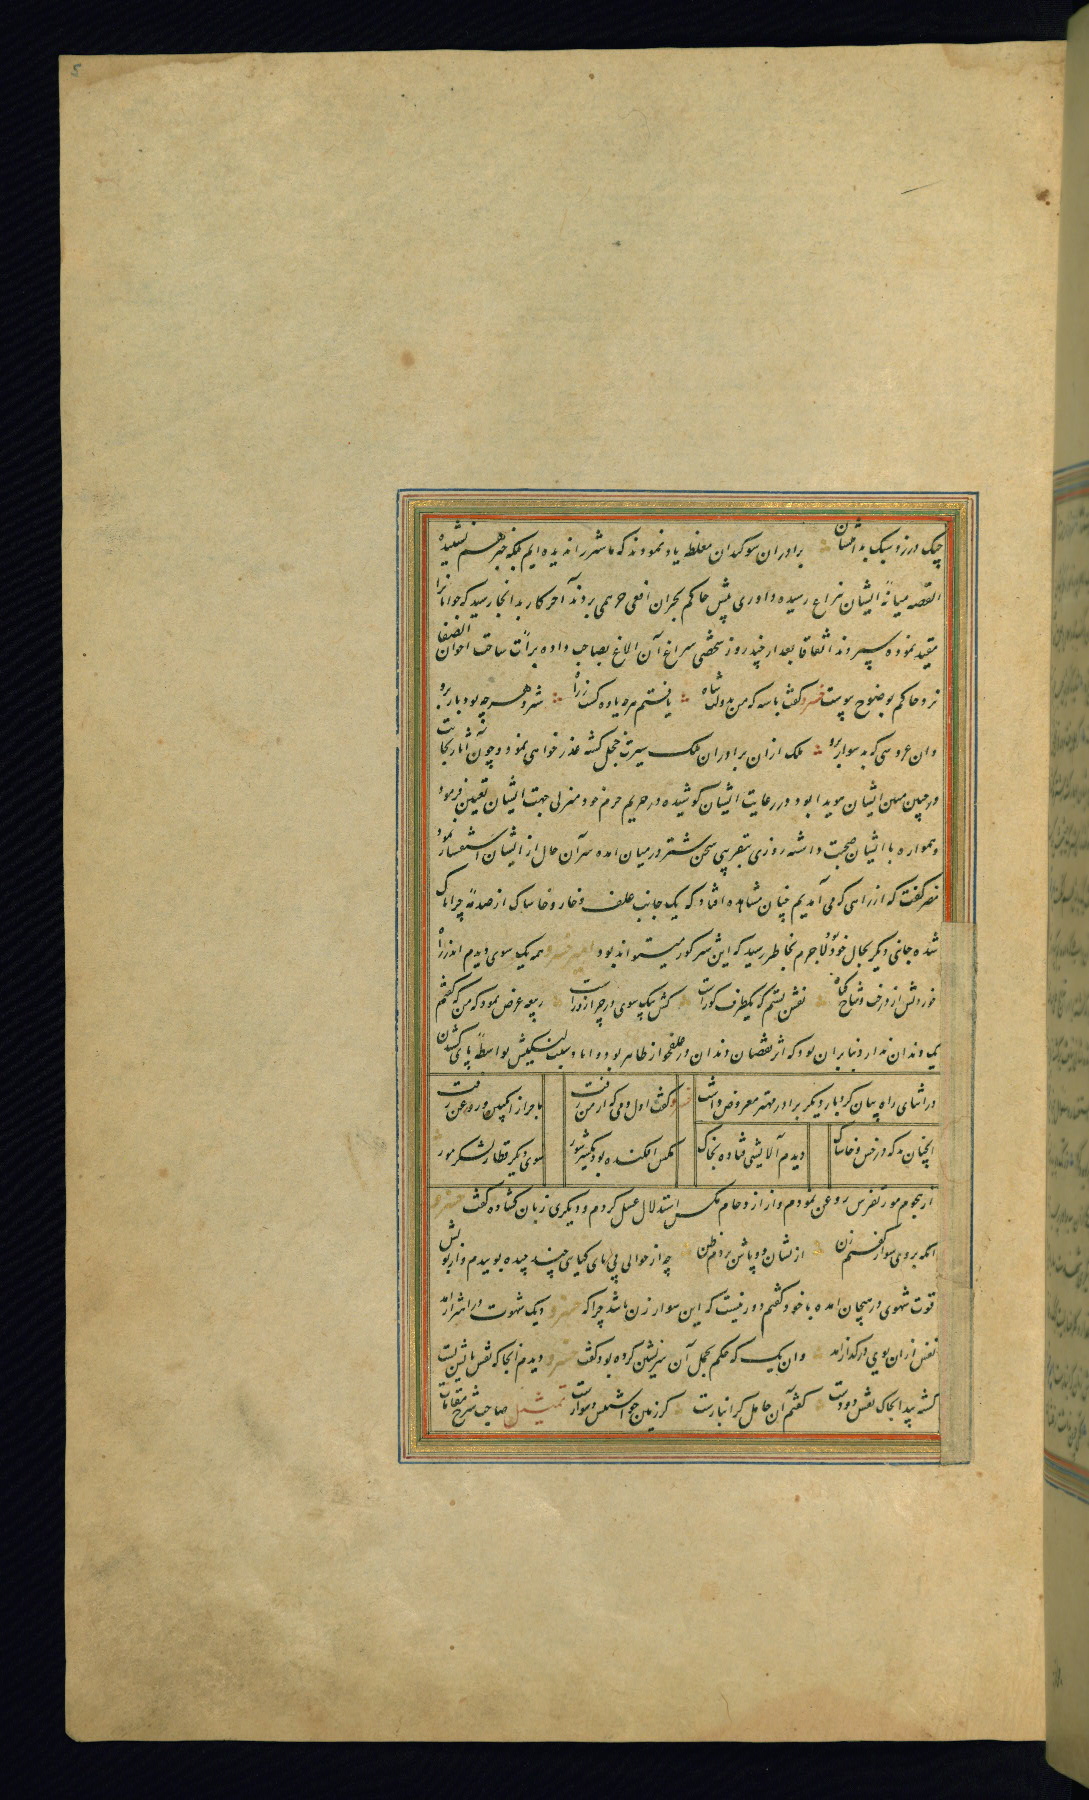 چنک در زد و سبک بدامنشان برادران سوکندان مغلظه یاد نمودند که ما شتر را ندیده ایم بلکه خبر هم نشنیده
القصه میانهٔ ایشان نزاع رسیده داوری پیش حاکم بحران افعی جرهمی بردند آخر کار بدانجا رسید که جوانانرا
مقید نموده سپردند اتفاقا بعد از چند روز شخصی سراغ آن الاغ بصاحب داده برائت ساحت اخوان الصفا
نزد حاکم بوضوح پیوست خسرو کفت با شه که من بدولت شاه یافتم هرچه یاوه کشت ز راه شتر و هر چه بود بار برو
وان عروسی که بد سوار برو ملک ازان برادران ملک سیرت خجل کشته عذر خواهی نمود و چون آثار نجابت
در جبین مبین ایشان هویدا بود در رعایت ایشان کوشیده در حریم حرم خود منزلی جهت ایشان تعیین فرمود
و همواره با ایشان صحبت داشته روزی بتقریبی سخن شتر درمیان امده سر آن حال از ایشان استفسار نمود
مضر کفت که از راهی که می آمدیم چنان مشاهده افتاد که یک جانب علف و خار و خاشاک از صدمهٔ چرا پاک
شده جانبی دیکر بحال خود بود لاجرم بخاطر رسید که این شتر کور میتواند بود امیر خسرو همه یک سوی دیدم اندر راه
خوردنش از درخت و شاخ کیاه نقش بستم که یکطرف کورست کش بیک سوی در چرا زورست ربیعه عرض نمود که من که کفتم
یک دندان ندارد بنابران بود که اثر نقصان دندان در علفخوار ظاهر بود و اما و سبب لنکیش بواسطهٔ پای کشیدن
در اثنای راه بیان کرد بار دیکر برادر مهتر معروض داشت خسرو کفت اول دمی که از من رفت ماجرا ز انکبین و روغن رفت
انچنان بد که در خس و خاشاک دیدم آلایشی فتاده بخاک مکس افکنده بود یکسر شور سوی دیکر قطار لشکر مور
از هجوم مور تفرس روغن نمودم و از ازدحام مکس استدلال عسل کردم و دیکری زبان کشاده کفت خسرو
انکه بر وی سوار کفتم زن از نشان دو پاش بردم ظن چه از حوالی پی پای کیاهی چند چیده بوییدم و از بوش
قوت شهوی در هیجان امده با خود کفتم دور نیست که این سوار زن باشد چرا که خسرو دیک شهوت در اهتزاز امد
نفس ازان بوی در کداز امد وان یک که حکم بحمل آن سرنشین کرده بود کفت خسرو دیدم انجا که نقش پایش بست
کشته پیدا بخاک نقش دو دست کفتم آن حامل کرانبارست کز زمین خواستنش دشوارست تمثیل صاحب شرح مقامات